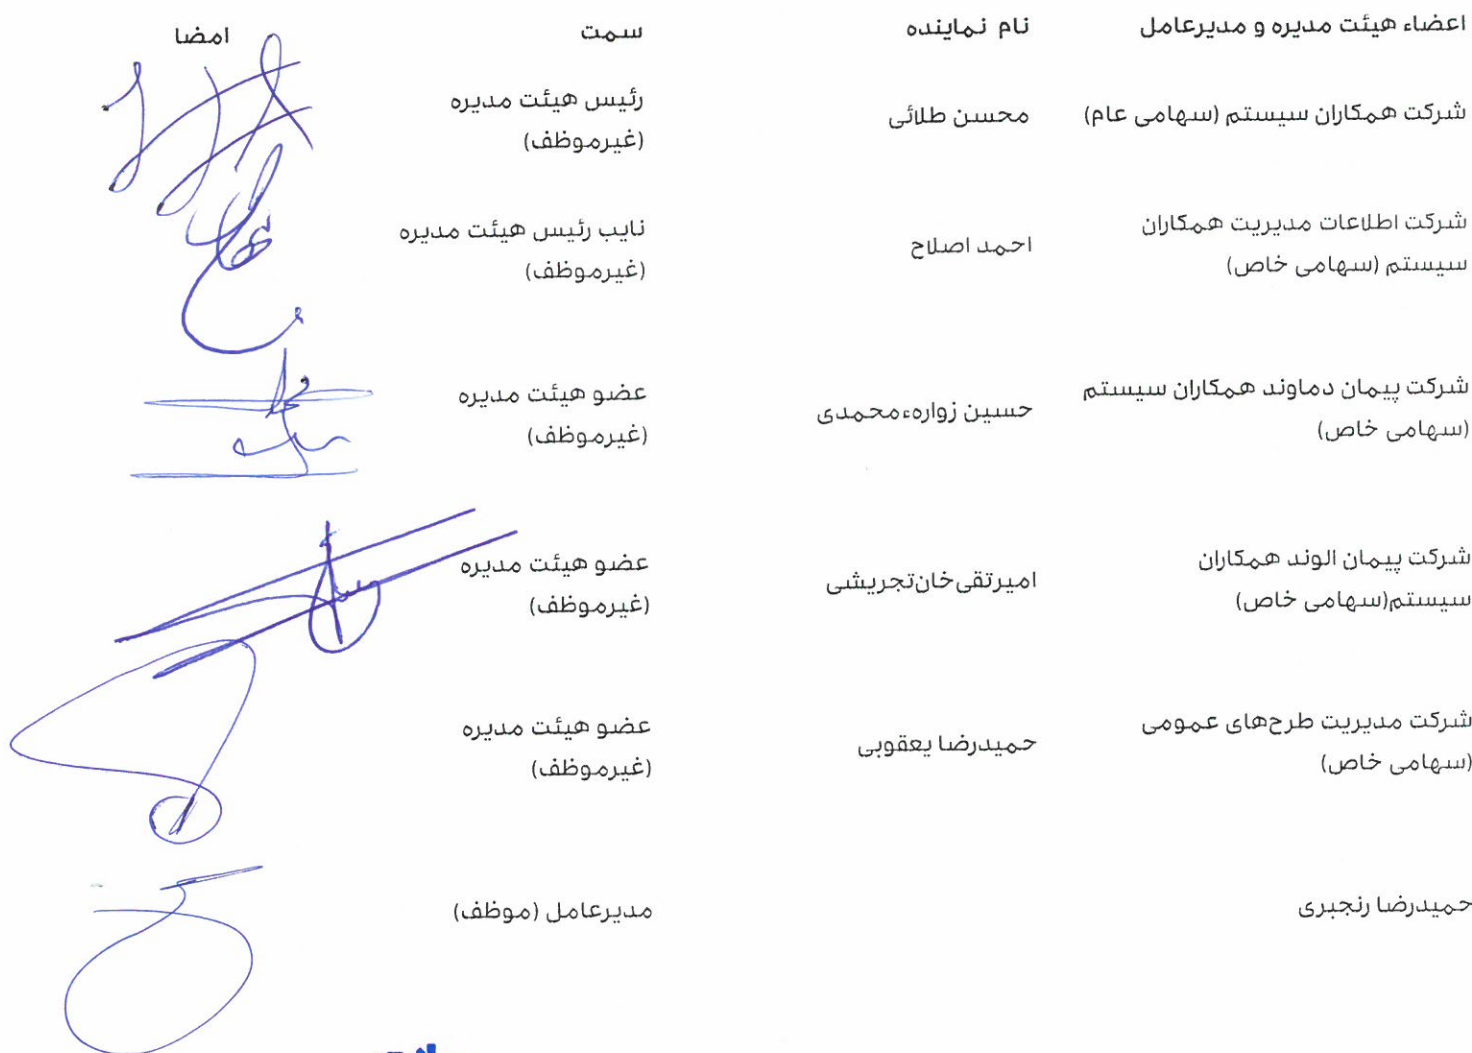 اعضاء هیئت مدیره و مدیرعامل نام نماینده سمت امضا
شرکت همکاران سیستم (سهامی عام) محسن طلائی رئیس هیئت مدیره
(غیرموظف)
شرکت اطلاعات مدیریت همکاران
سیستم (سهامی خاص) احمد اصلاح نایب رئیس هیئت مدیره
(غیرموظف)
شرکت پیمان دماوند همکاران سیستم
(سهامی خاص) حسین زواره‌ءمحمدی عضو هیئت مدیره
(غیرموظف)
شرکت پیمان الوند همکاران
سیستم(سهامی خاص) امیرتقی‌خان‌تجریشی عضو هیئت مدیره
(غیرموظف)
شرکت مدیریت طرح‌های عمومی
(سهامی خاص) حمیدرضا یعقوبی عضو هیئت مدیره
(غیرموظف)
حمیدرضا رنجبری مدیرعامل (موظف)